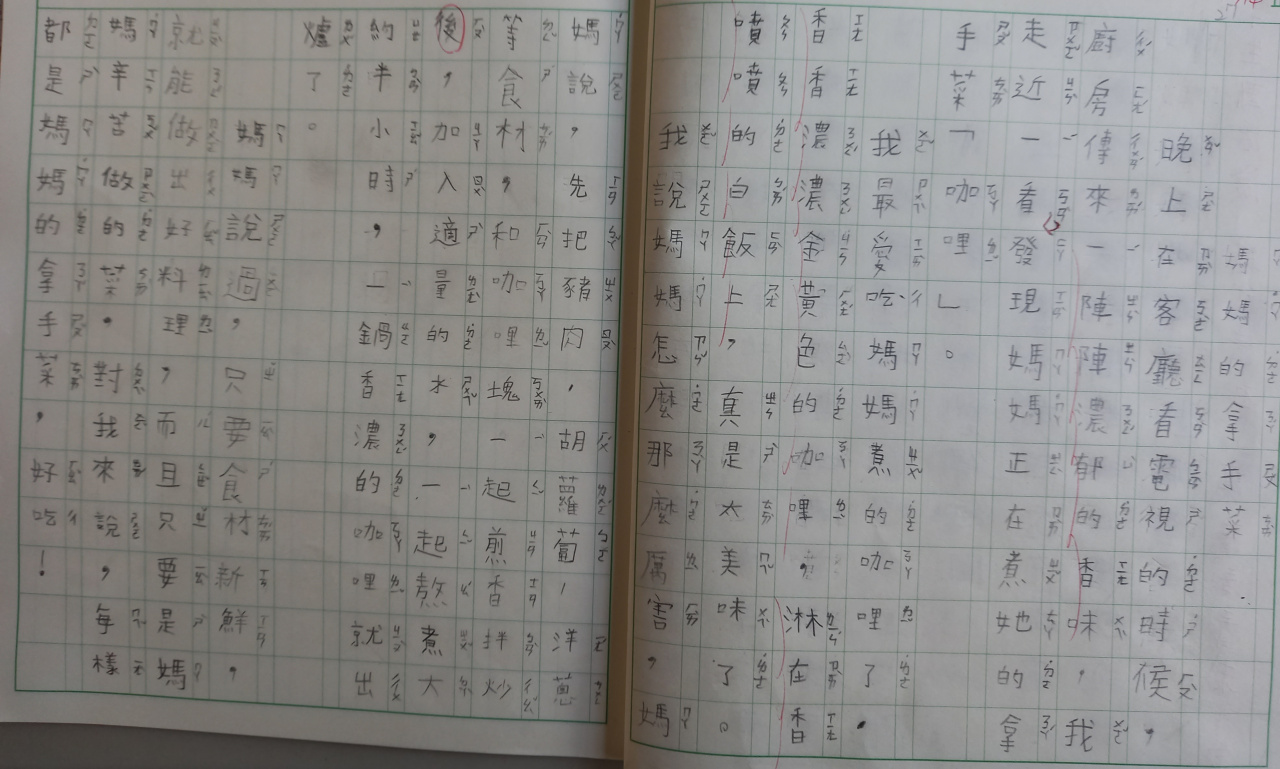 媽媽的拿手菜
晚上在客廳看電視的時候，
廚房傳來一陣陣濃郁的香味，我
走近一看發現媽媽正在煮她的拿
手菜「咖哩」。
我最愛吃媽媽煮的咖哩了，
香香濃濃金黃色的咖哩，淋在香
噴噴的白飯上，真是太美味了。
我說媽媽怎麼那麼厲害，媽
媽說，先把豬肉，胡蘿蔔、洋蔥
等食材，和咖哩塊一起煎香拌炒
後，加入適量的水，一起熬煮大
約半小時，一鍋香濃的咖哩就出
爐了。
媽媽說過，只要食材新鮮，
就能做出好料理，而且只要是媽
媽辛苦做的菜，對我來說，每樣
都是媽媽的拿手菜，好吃！